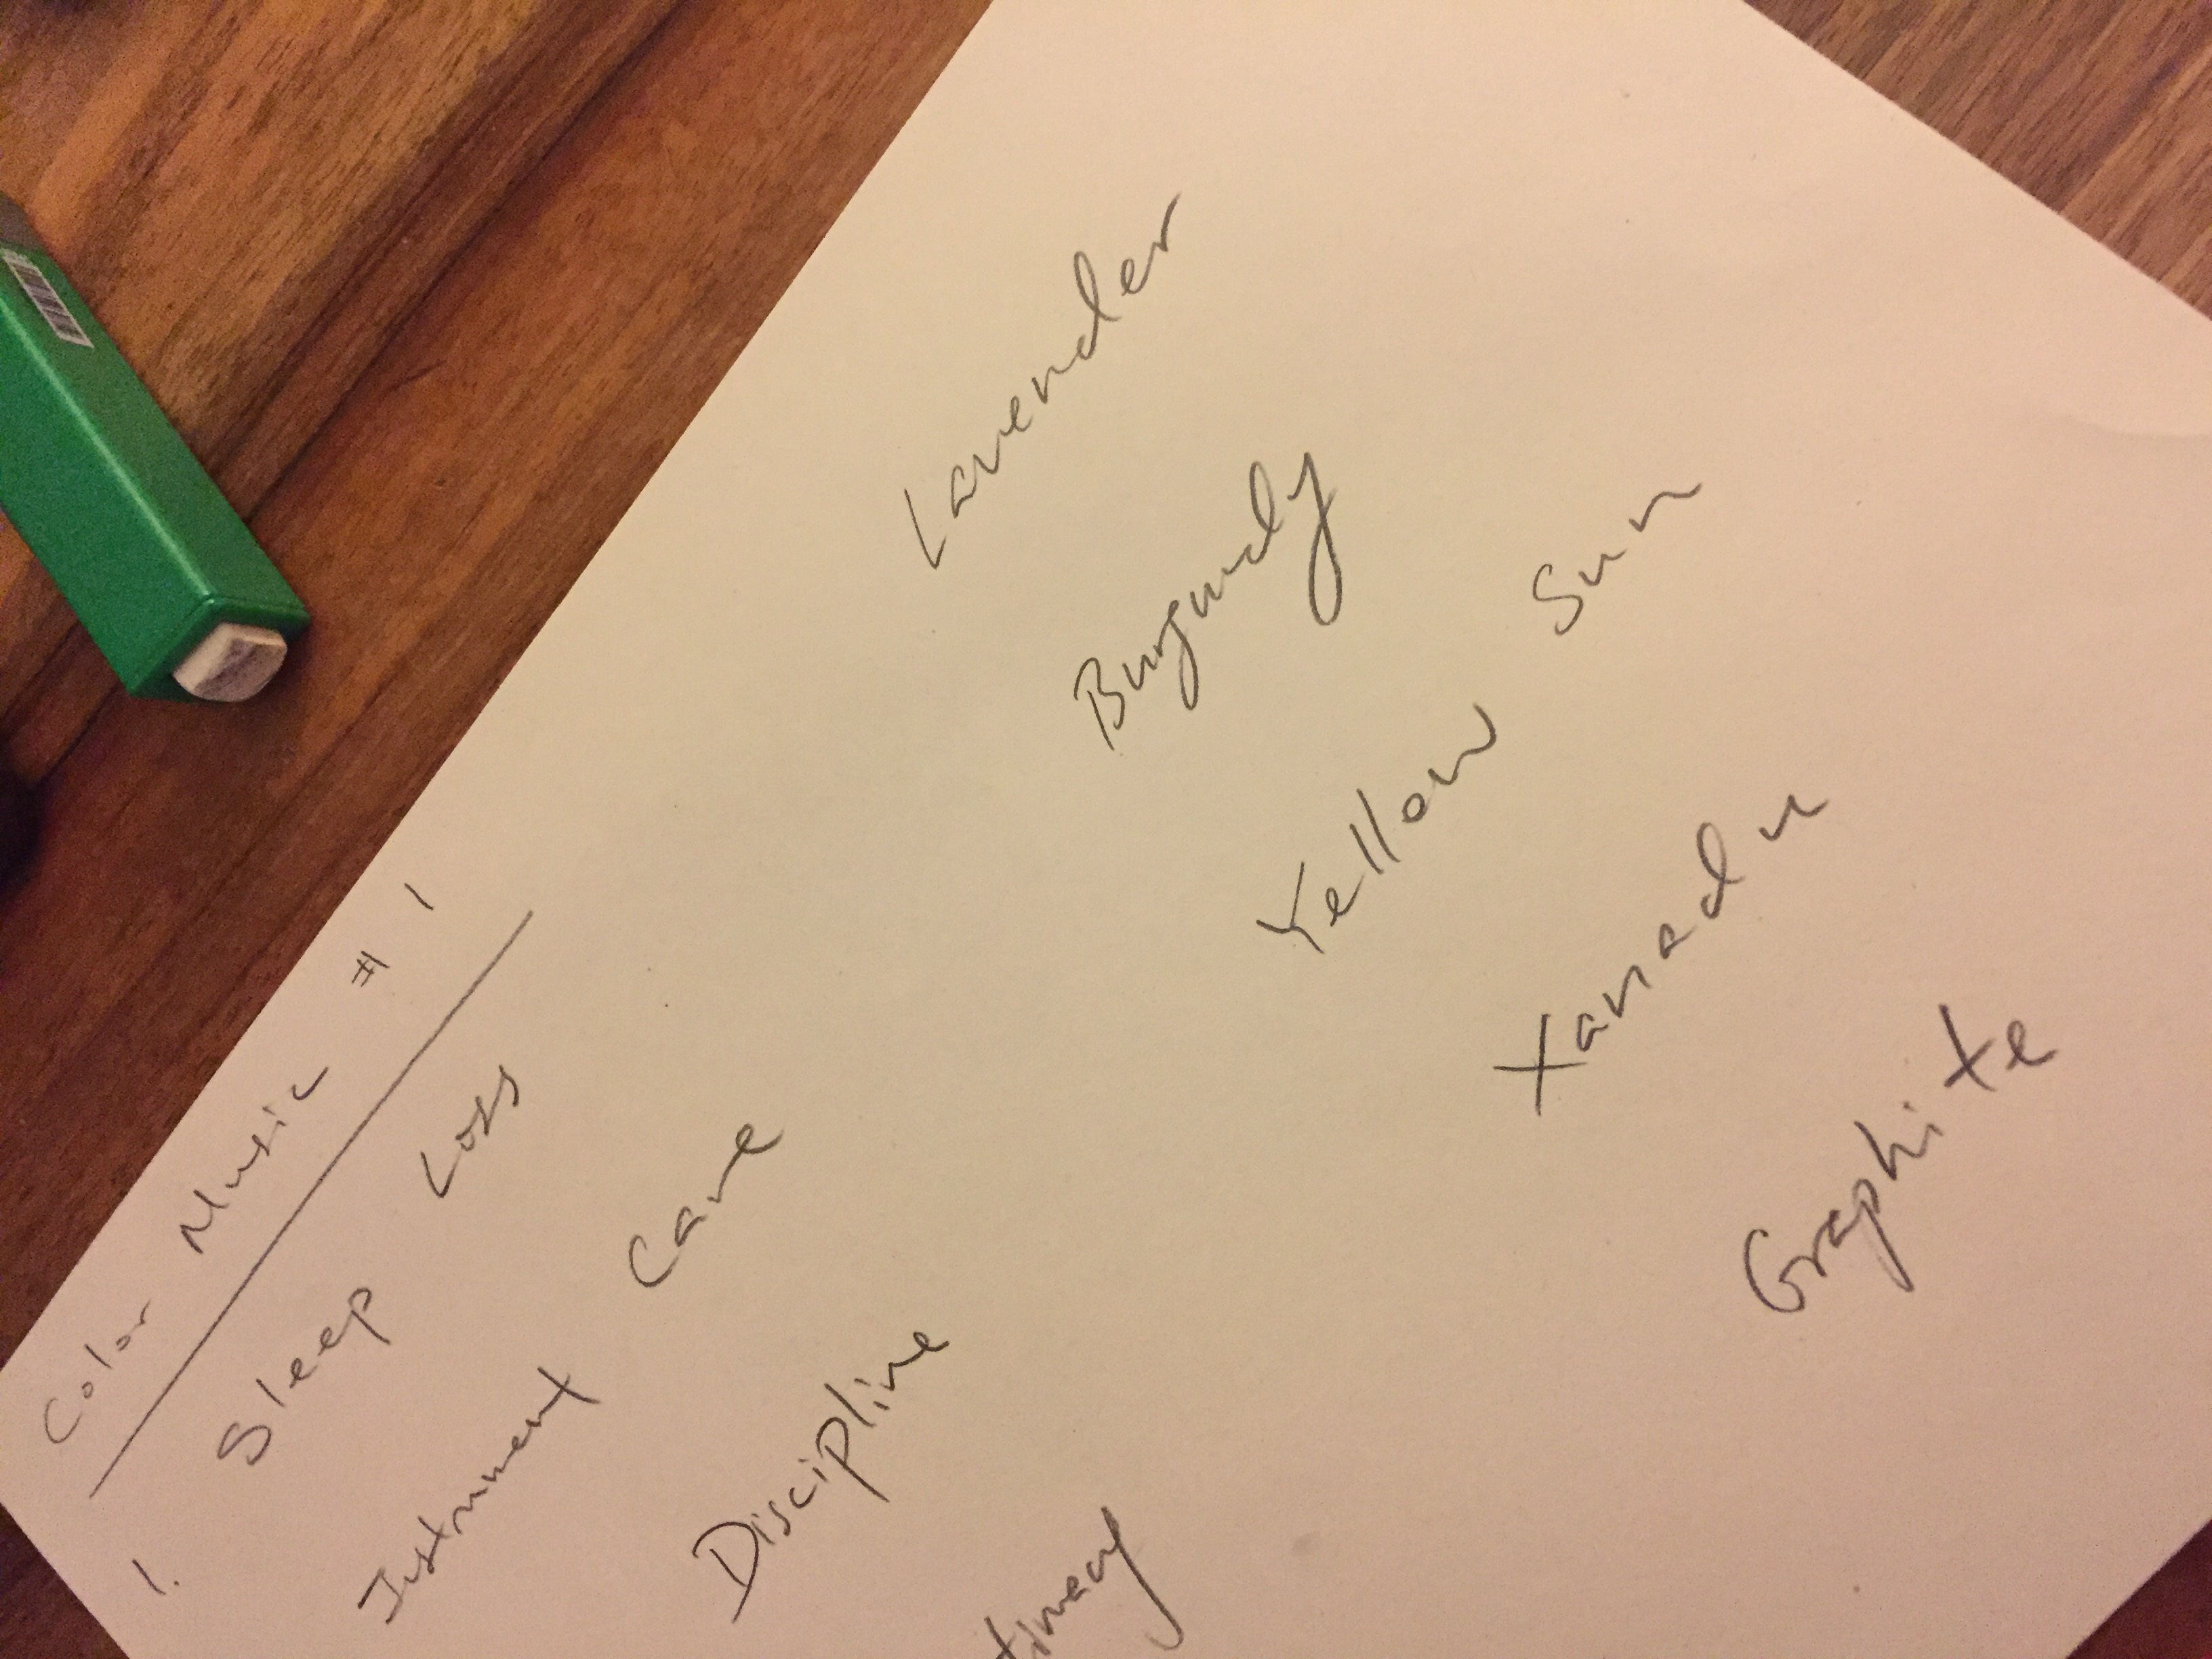 Color Music #1
1. Sleep Loss Lavender
Instrument Care Burgundy
Discipline Yellow Sun
timacy Xanadu
Graphite